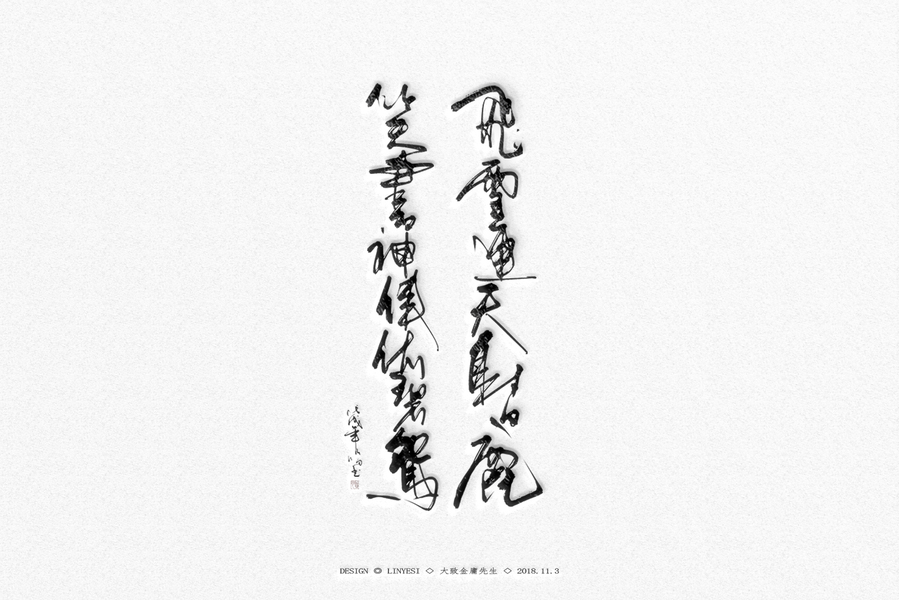 飛雪連天射白鹿
笑書神俠倚碧鴛
DESIGN ◎ LINYESI ◇ 大致金庸先生 ◇ 2018.11.3